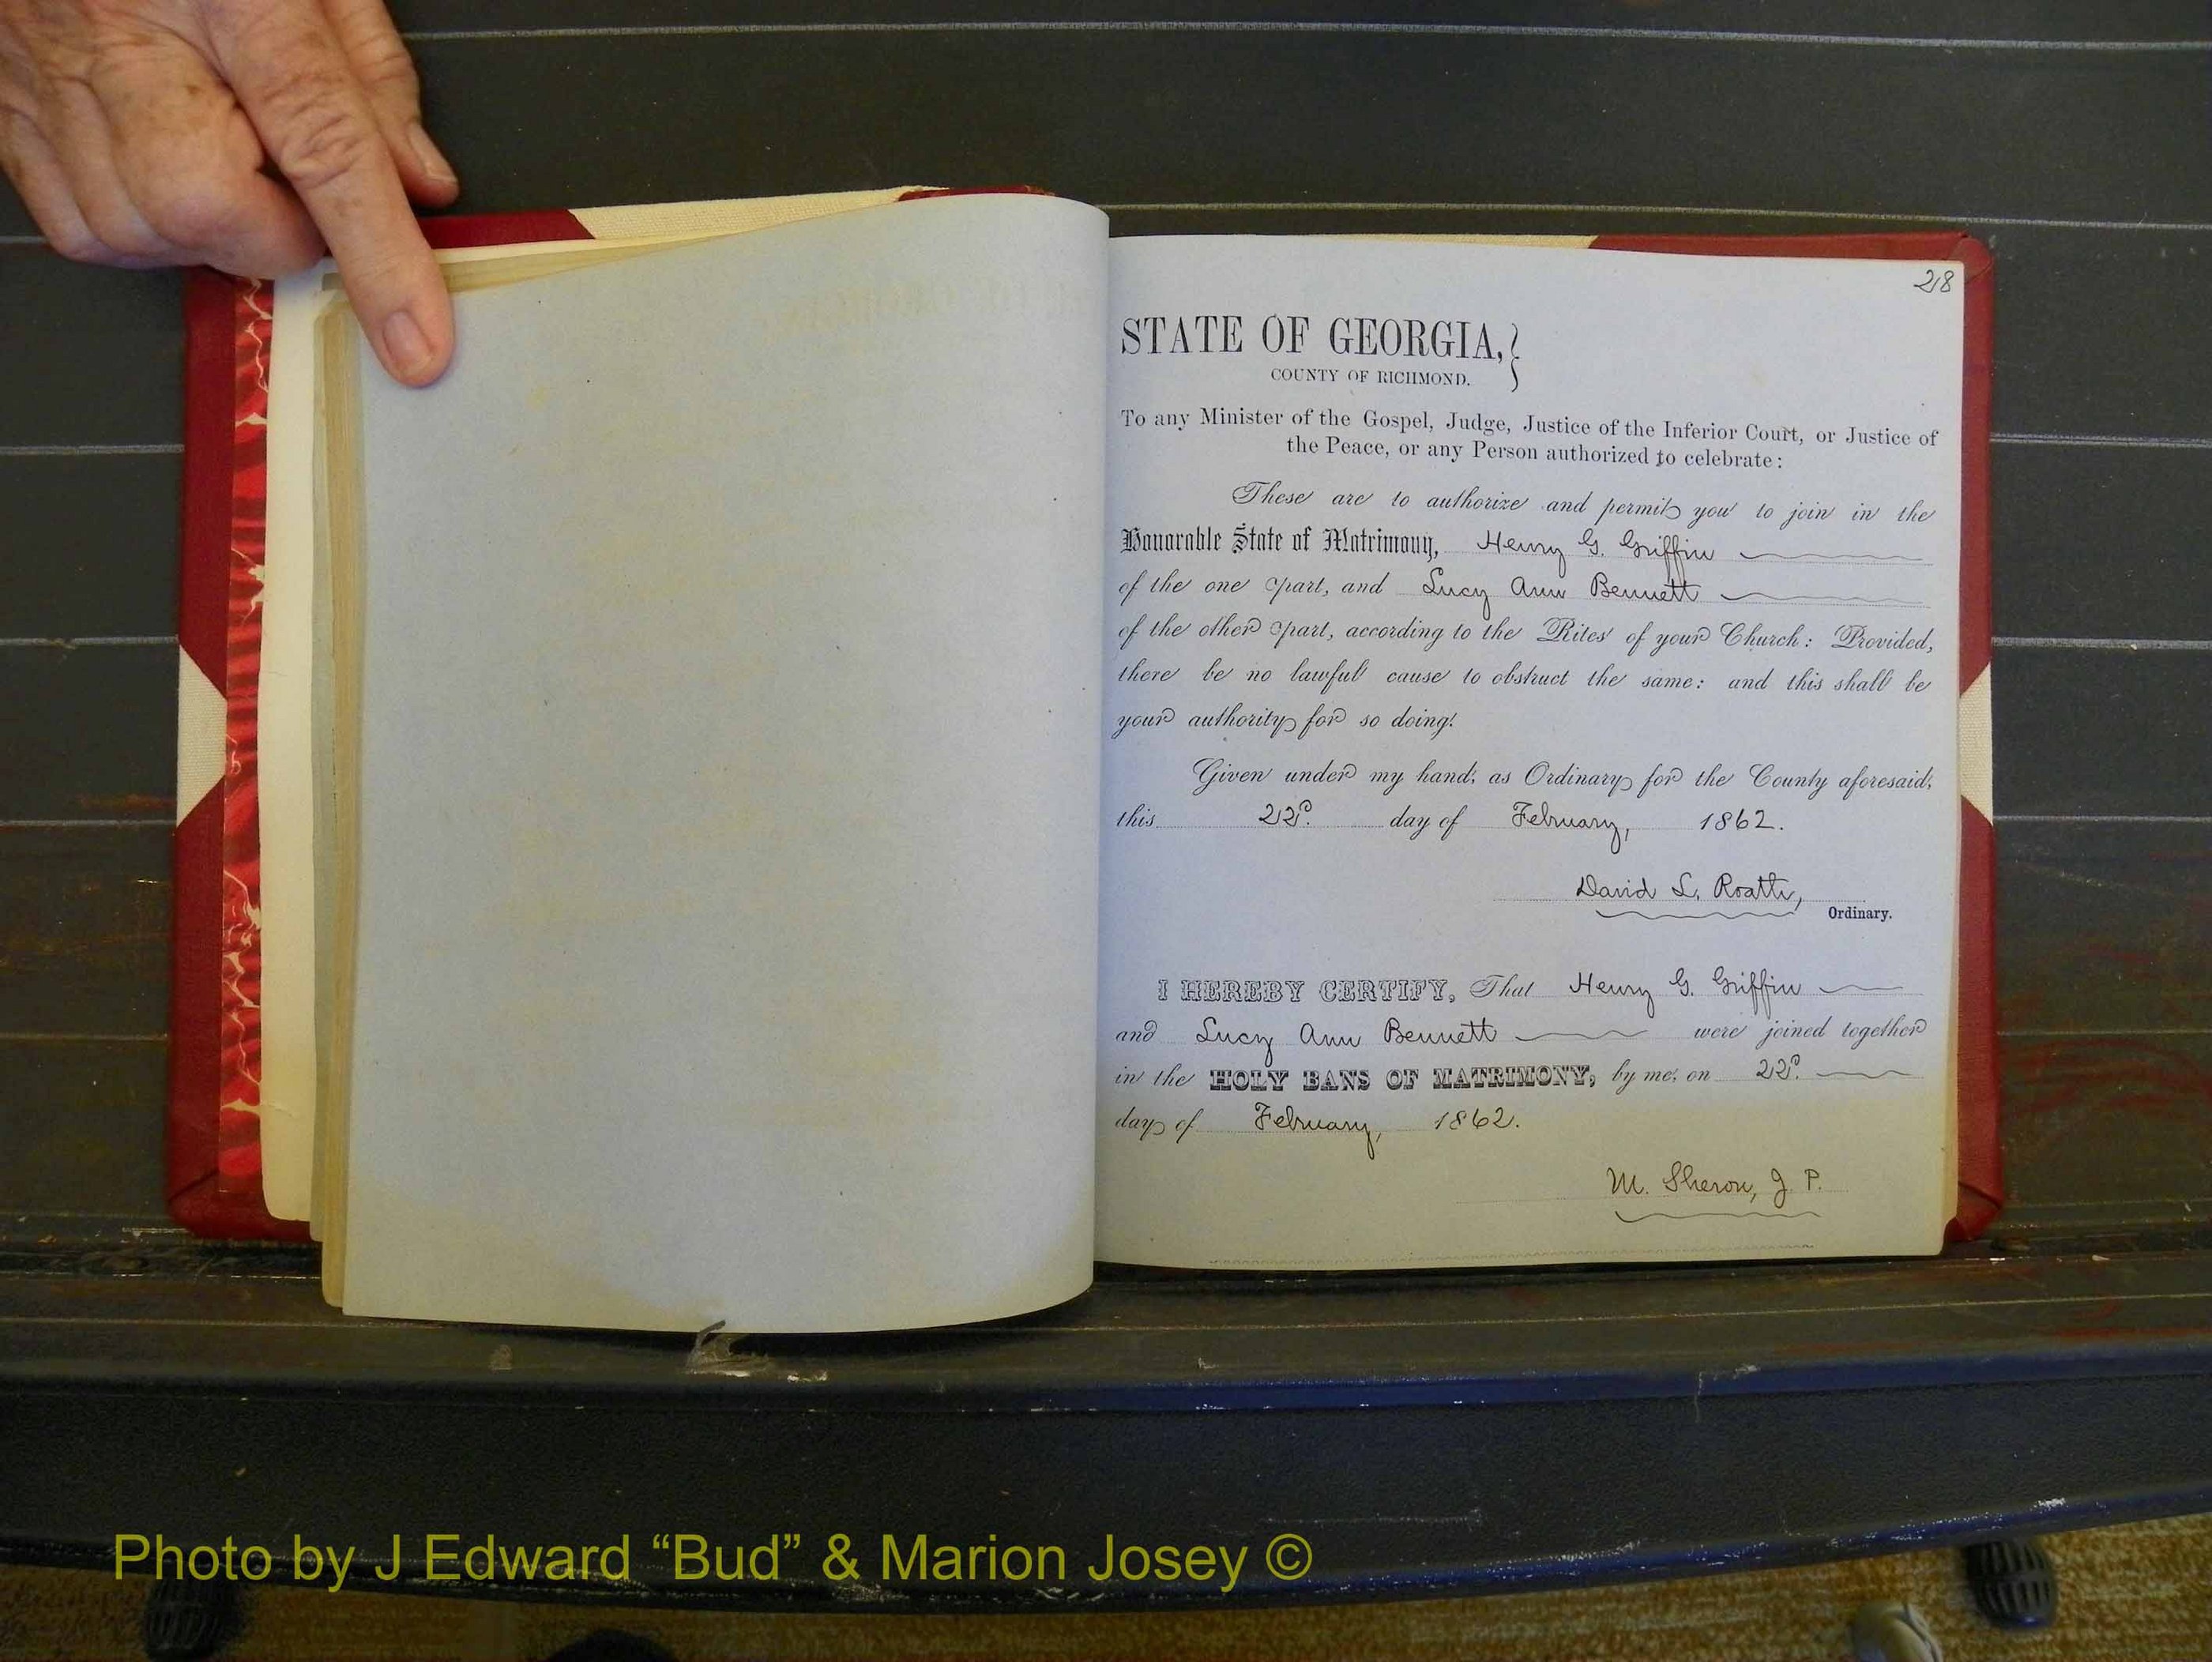 28
STATE OF GEORGIA,
COUNTY OF RICHMOND.
To any Minister of the Gospel, Judge, Justice of the Inferior Court, or Justice of
the Peace, or any Person authorized to celebrate:
These are to authorize and permit you to join in the
Honorable State of Matrimony, Henry G. Griffin
of the one part, and Lucy Ann Bennett
of the other part, according to the Rites of your Church: Provided,
there be no lawful cause to obstruct the same: and this shall be
your authority for so doing.
Given under my hand, as Ordinary for the County aforesaid,
this 22d. day of February, 1862.
David L. Roath,
Ordinary.
I HEREBY CERTIFY, That Henry G. Griffin
and Lucy Ann Bennett were joined together
in the HOLY BANS OF MATRIMONY, by me, on 22d.
day of February, 1862.
M. Sheron, J. P.
Photo by J Edward “Bud” & Marion Josey ©